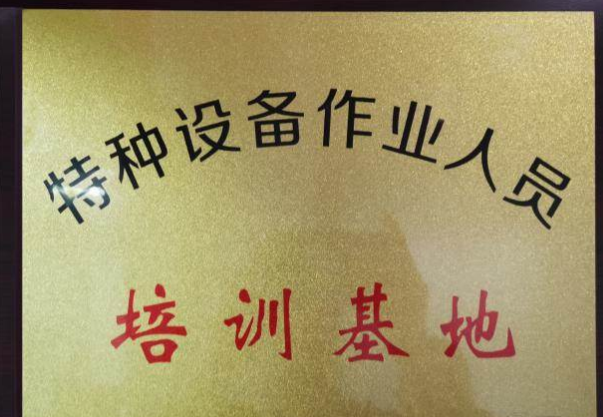 特种设备作业人员
培训基地